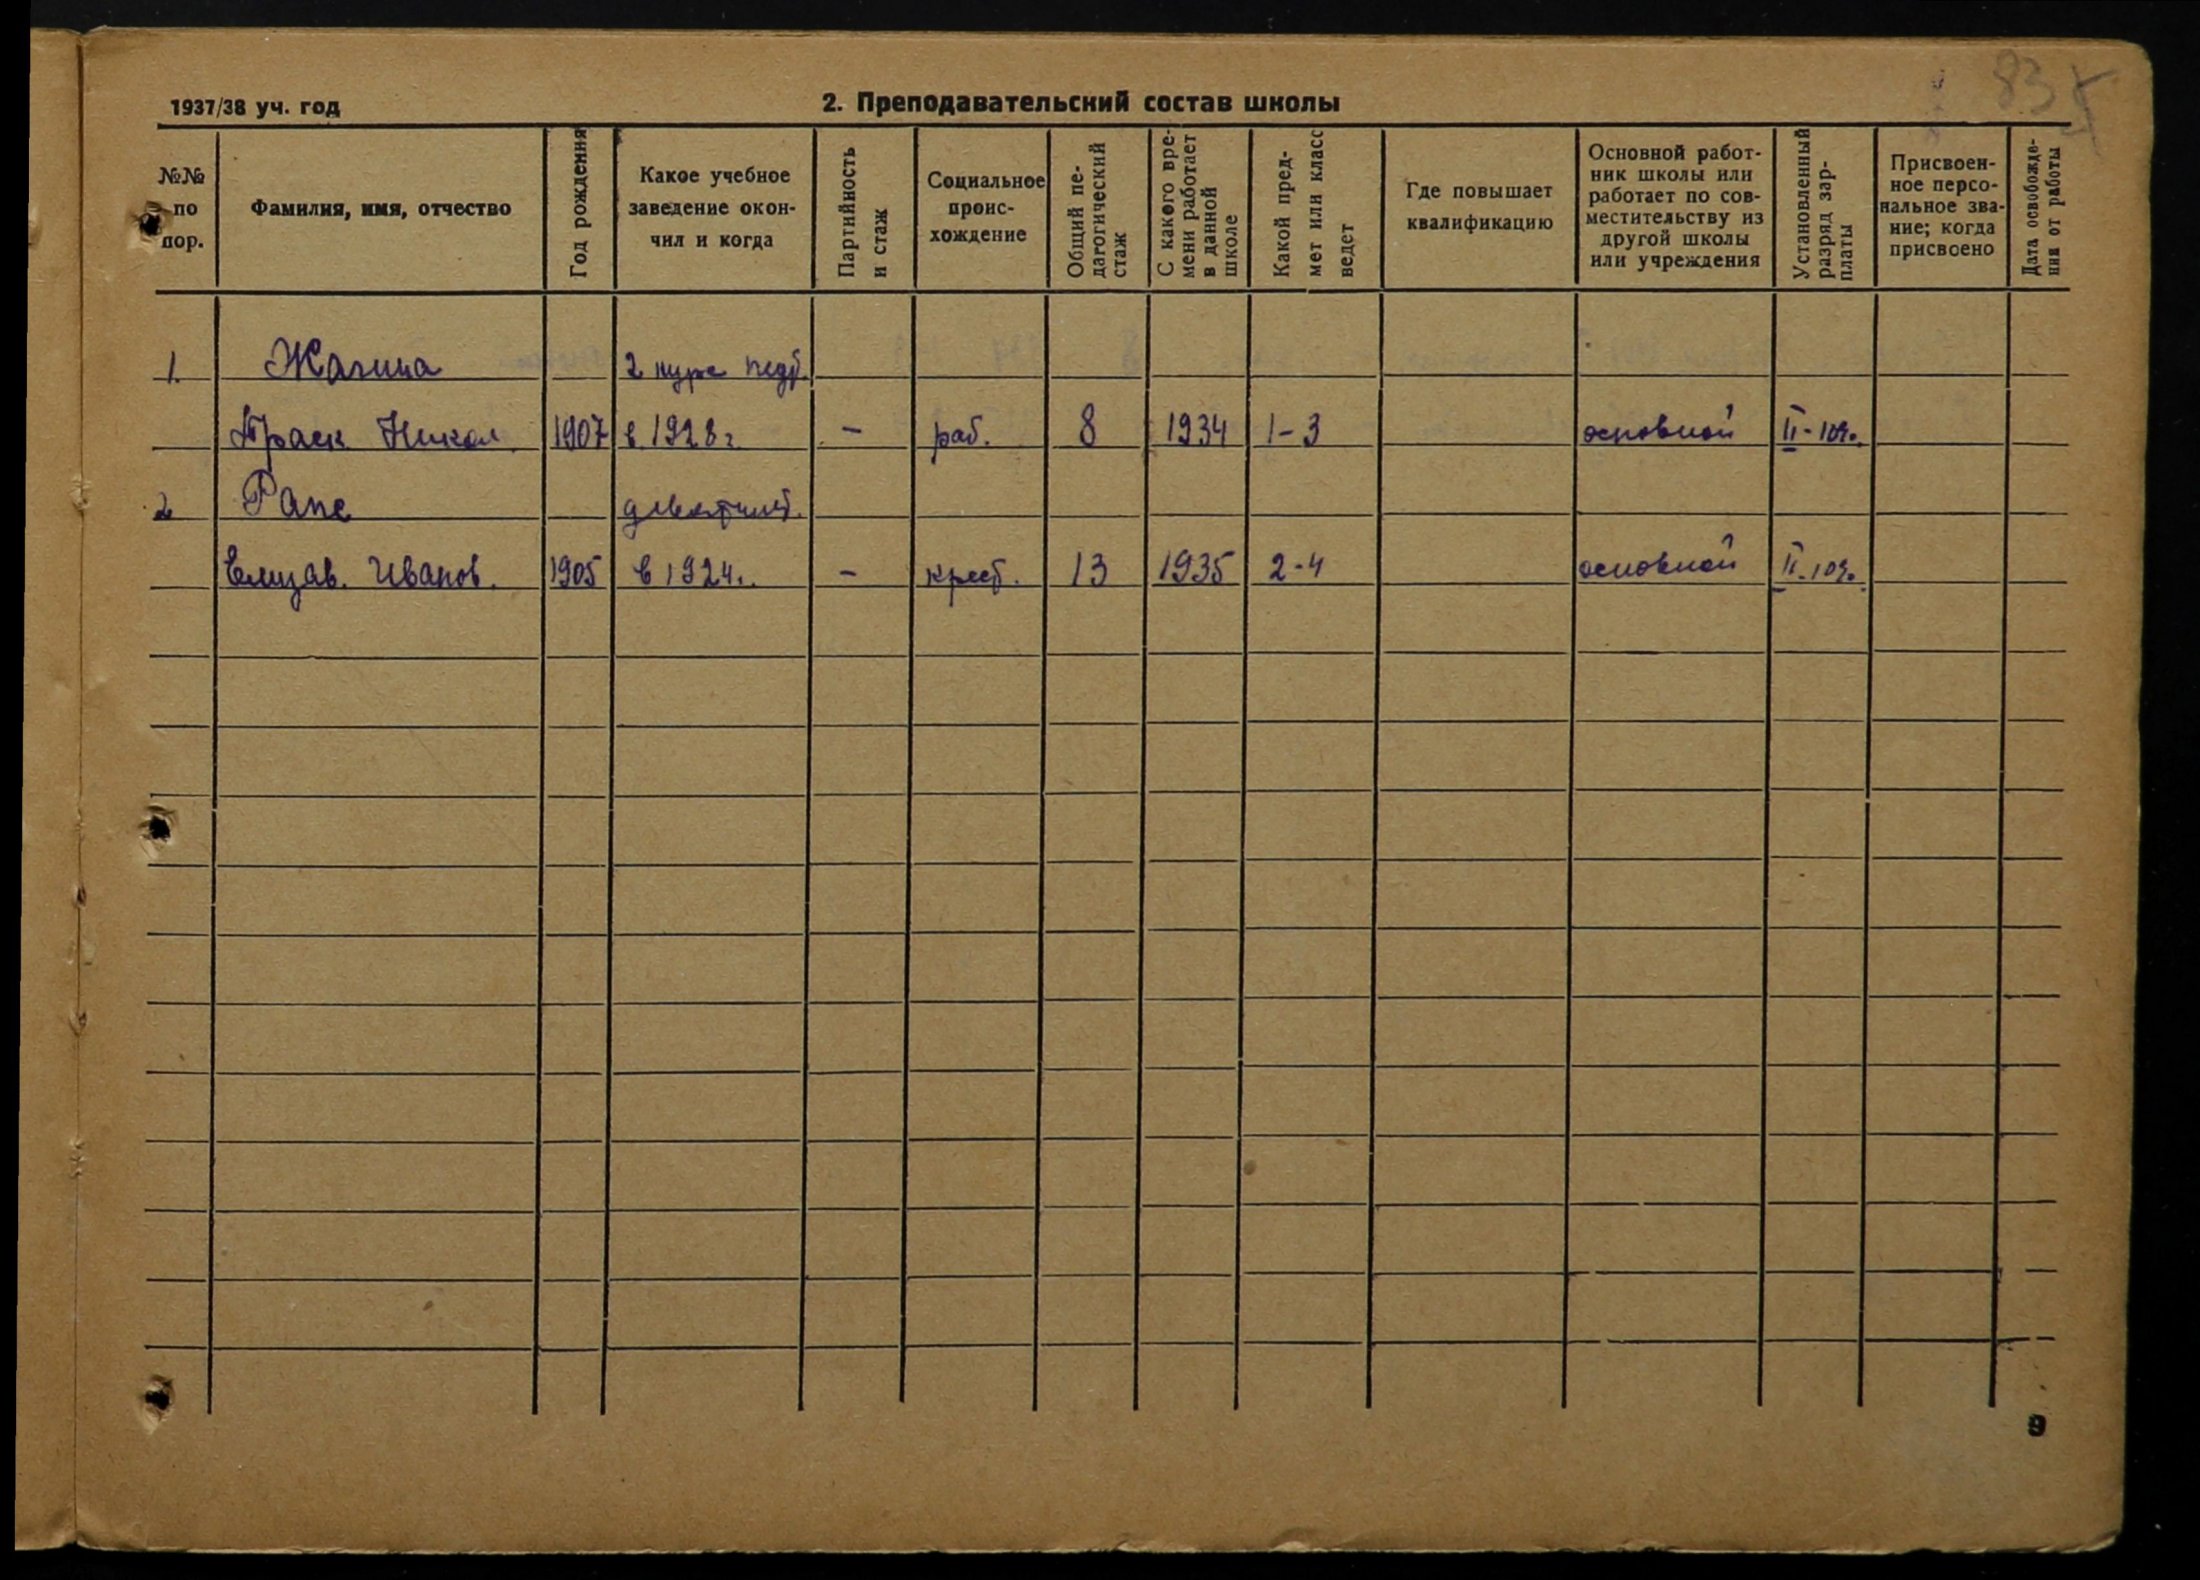 83
1937/38 уч. год
2. Преподавательский состав школы
№№ по пор.
Фамилия, имя, отчество
Год рождения
Какое учебное заведение окон-чил и когда
Партийность и стаж
Социальное проис-хождение
Общий пе-дагогический стаж
С какого вре-мени работает в данной школе
Какой пред-мет или класс ведет
Где повышает квалификацию
Основной работ-ник школы или работает по сов-местительству из другой школы или учреждения
Установленный разряд зар-платы
Присвоен-ное персо-нальное зва-ние; когда присвоено
Дата освобожде-ния от работы
1. 2 курс
Праск. Никол. 1907 в 1928 г. – раб. 8 1934 1-3 основной II-
2 Рапс девятилет.
Елизав. Иванов. 1905 в 1924 г. – крест. 13 1935 2-4 основной II-
9